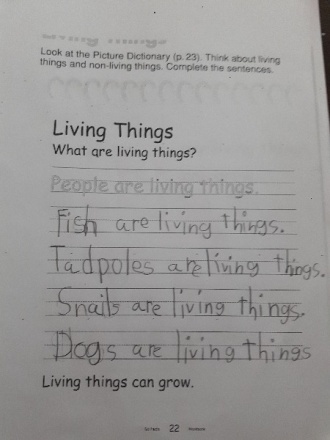 Living Things
Look at the Picture Dictionary (p. 23). Think about living
things and non-living things. Complete the sentences.
Living Things
What are living things?
People are living things.
Fish are living things.
Tadpoles are living things.
Snails are living things.
Dogs are living things
Living things can grow.
22